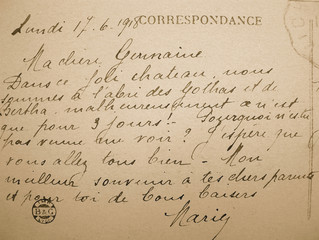 CORRESPONDANCE
Lundi 17.6.1918
Ma chère Germaine
Dans ce joli chateau, nous
sommes à l'abri des Gothas et de
Bertha. malheureusement ce n'est
que pour 3 jours - Pourquoi n'es tu
pas venue me voir? J'espère que
vous allez tous bien - Mon
meilleur souvenir à tes chers parents
et pour toi de bons baisers
B&G